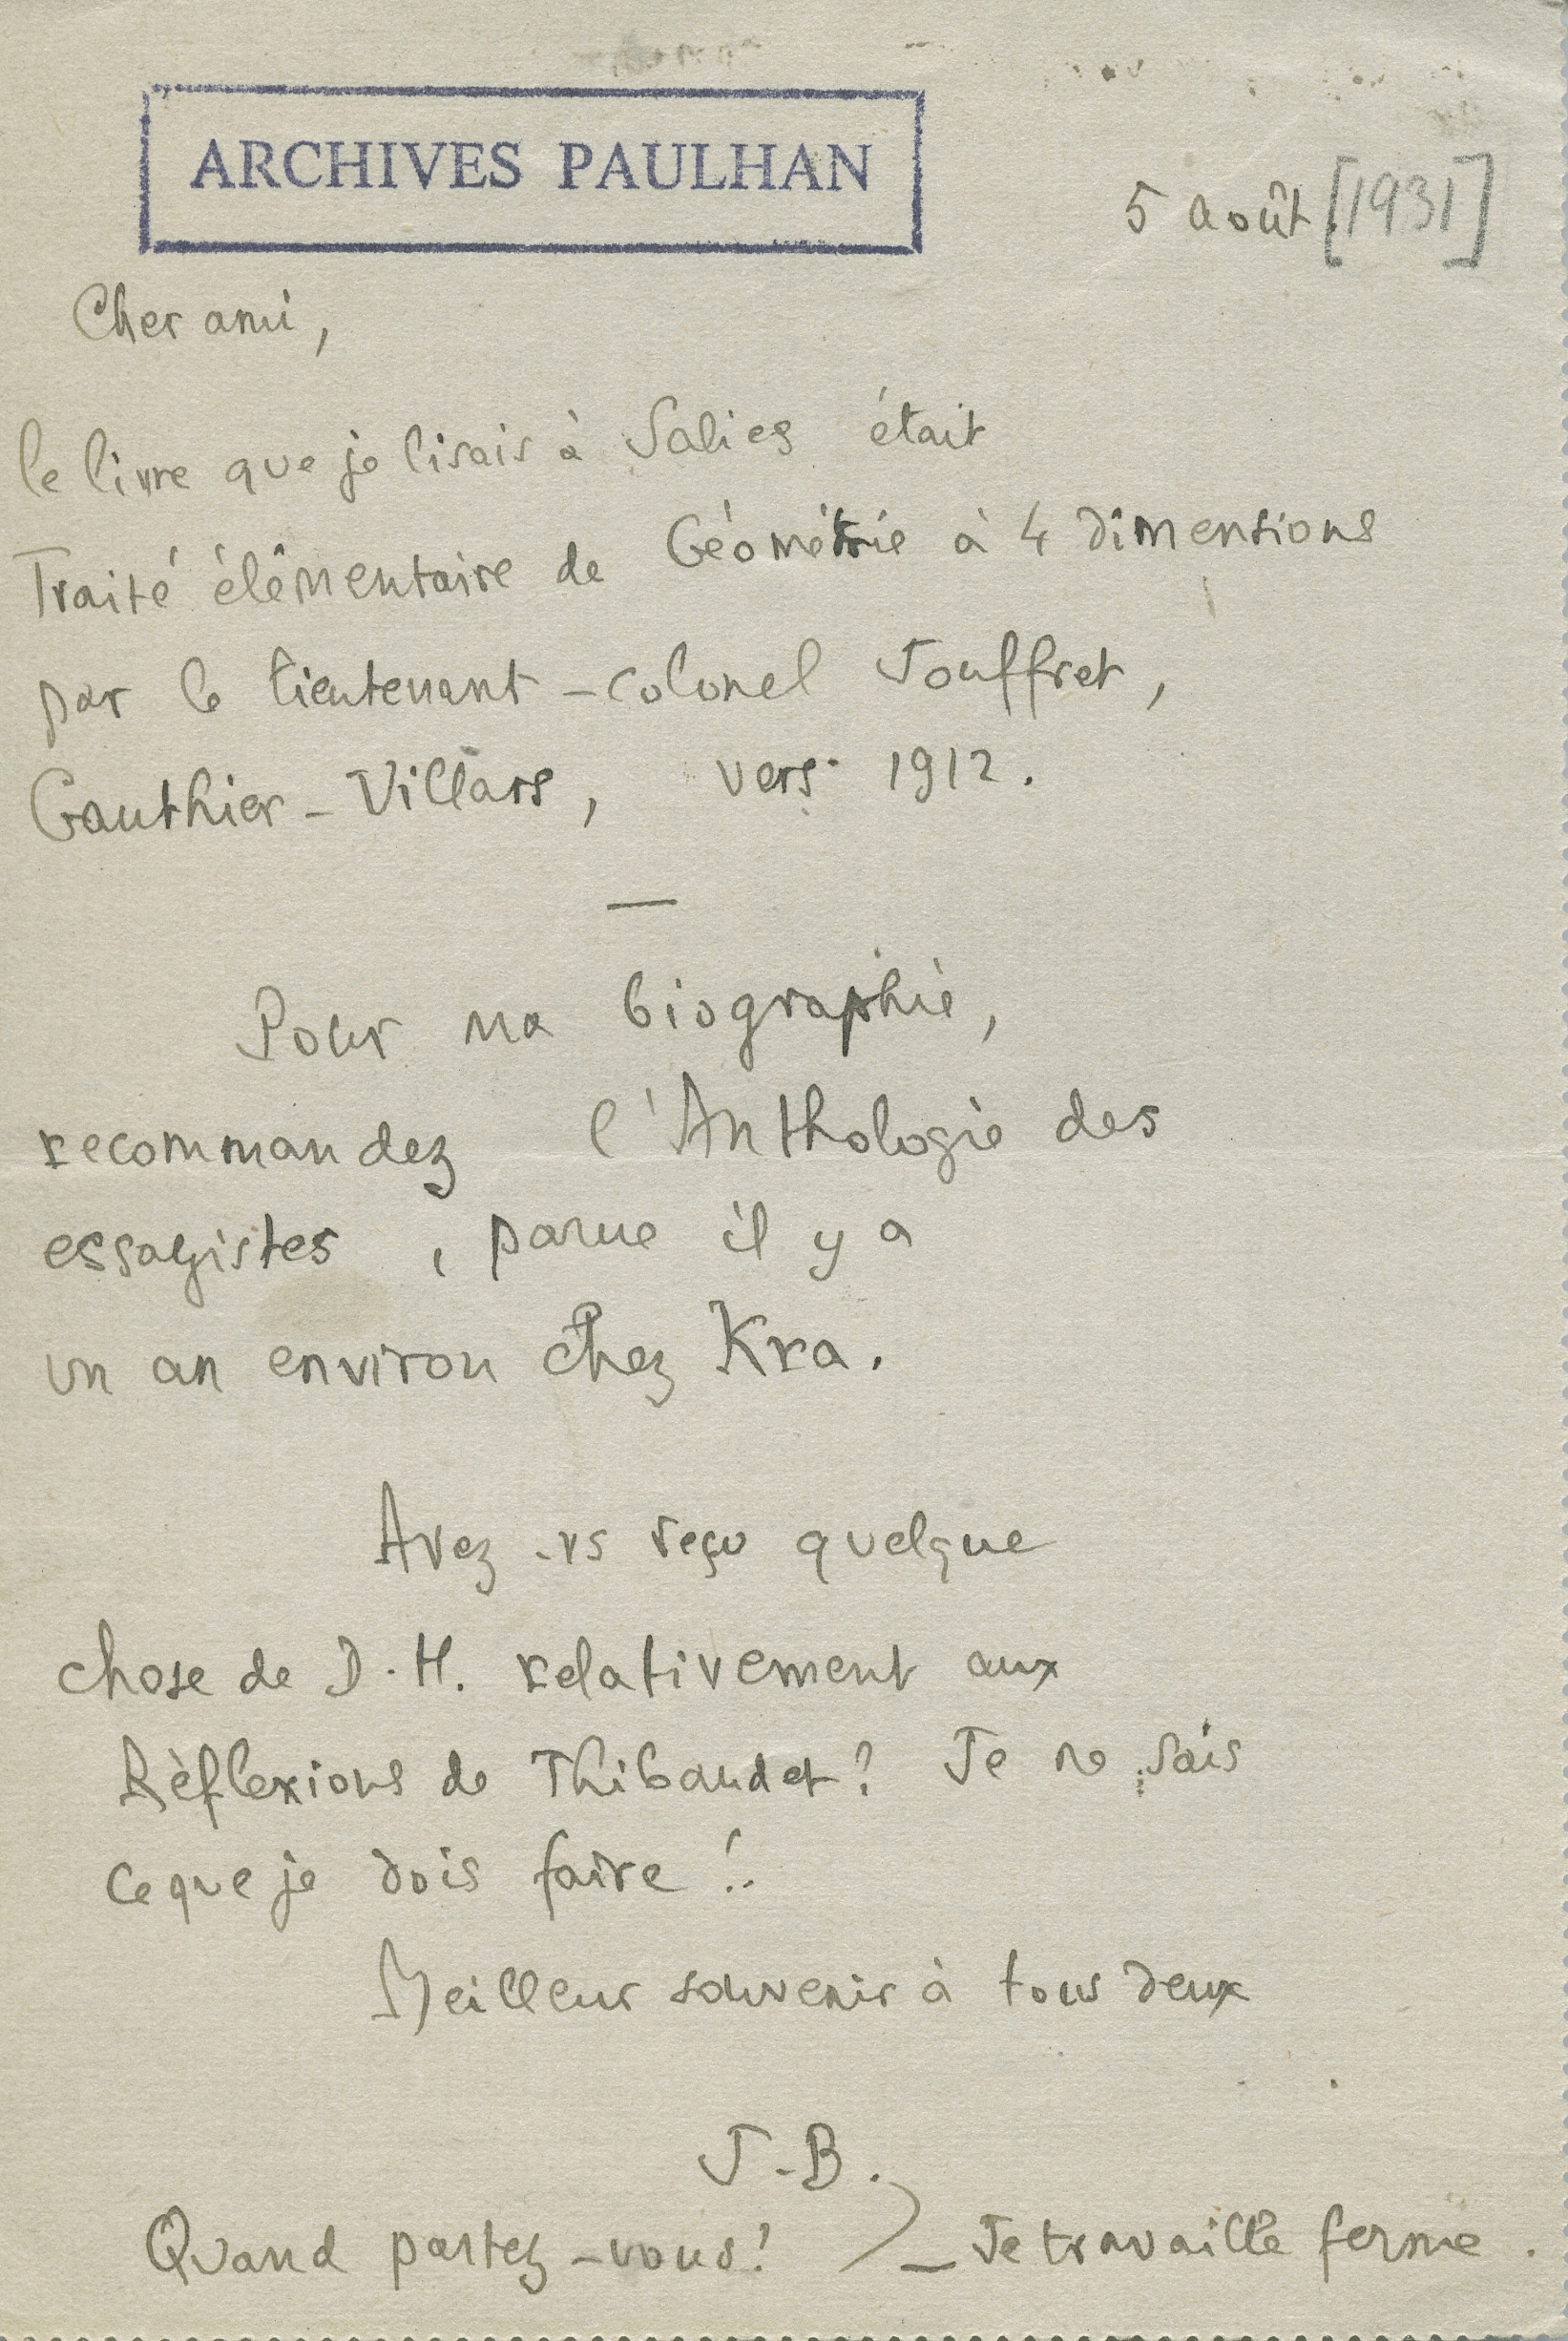 ARCHIVES PAULHAN
5 août [1931]
Cher ami,
le livre que je lisais à Salies était
Traité élémentaire de Géométrie à 4 dimensions
par le lieutenant-colonel Jouffret,
Gauthier-Villars, vers 1912.
—
Pour ma biographie,
recommandez l'Anthologie des
essayistes, parue il y a
un an environ chez Kra.
Avez-vs reçu quelque
chose de D.H. relativement aux
Réflexions de Thibaudet? Je ne sais
ce que je dois faire!.
Meilleur souvenir à tous deux
J-B.
Quand partez-vous? — Je travaille ferme.